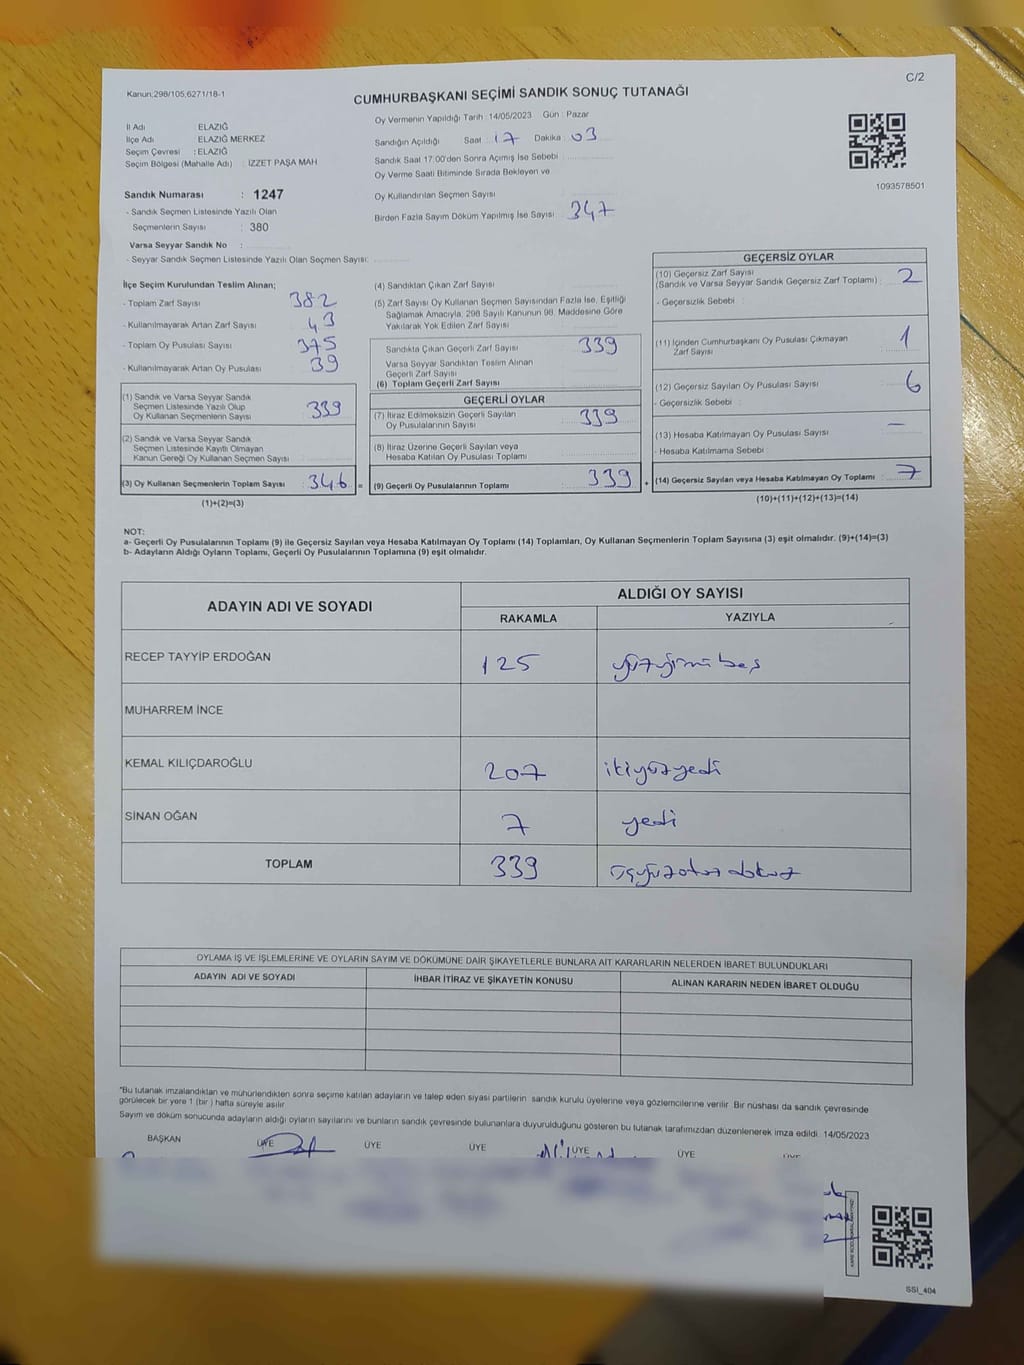 C/2
Kanun:298/105,6271/18-1
CUMHURBAŞKANI SEÇİMİ SANDIK SONUÇ TUTANAĞI
İl Adı ELAZIĞ
İlçe Adı ELAZIĞ MERKEZ
Seçim Çevresi : ELAZIĞ
Seçim Bölgesi (Mahalle Adı) : İZZET PAŞA MAH
Sandık Numarası : 1247
- Sandık Seçmen Listesinde Yazılı Olan
Seçmenlerin Sayısı : 380
Varsa Seyyar Sandık No :
- Seyyar Sandık Seçmen Listesinde Yazılı Olan Seçmen Sayısı:
Oy Vermenin Yapıldığı Tarih : 14/05/2023 Gün : Pazar
Sandığın Açıldığı Saat 17 Dakika 03
Sandık Saat 17:00'den Sonra Açımış İse Sebebi
Oy Verme Saati Bitiminde Sırada Bekleyen ve
Oy Kullandırılan Seçmen Sayısı
Birden Fazla Sayım Döküm Yapılmış İse Sayısı 347
1093578501
İlçe Seçim Kurulundan Teslim Alınan;
- Toplam Zarf Sayısı 382
- Kullanılmayarak Artan Zarf Sayısı 43
- Toplam Oy Pusulası Sayısı 375
- Kullanılmayarak Artan Oy Pusulası 39
(1) Sandık ve Varsa Seyyar Sandık
Seçmen Listesinde Yazılı Olup
Oy Kullanan Seçmenlerin Sayısı 339
(2) Sandık ve Varsa Seyyar Sandık
Seçmen Listesinde Kayıtlı Olmayan
Kanun Gereği Oy Kullanan Seçmen Sayısı
(3) Oy Kullanan Seçmenlerin Toplam Sayısı 346 =
(1)+(2)=(3)
(4) Sandıktan Çıkan Zarf Sayısı
(5) Zarf Sayısı Oy Kullanan Seçmen Sayısından Fazla İse, Eşitliği
Sağlamak Amacıyla, 298 Sayılı Kanunun 98. Maddesine Göre
Yakılarak Yok Edilen Zarf Sayısı
Sandıkta Çıkan Geçerli Zarf Sayısı 339
Varsa Seyyar Sandıktan Teslim Alınan
Geçerli Zarf Sayısı
(6) Toplam Geçerli Zarf Sayısı
GEÇERLİ OYLAR
(7) İtiraz Edilmeksizin Geçerli Sayılan
Oy Pusulalarının Sayısı 339
(8) İtiraz Üzerine Geçerli Sayılan veya
Hesaba Katılan Oy Pusulası Toplamı
(9) Geçerli Oy Pusulalarının Toplamı 339 +
GEÇERSİZ OYLAR
(10) Geçersiz Zarf Sayısı
(Sandık ve Varsa Seyyar Sandık Geçersiz Zarf Toplamı) 2
- Geçersizlik Sebebi
(11) İçinden Cumhurbaşkanı Oy Pusulası Çıkmayan
Zarf Sayısı 1
(12) Geçersiz Sayılan Oy Pusulası Sayısı 6
- Geçersizlik Sebebi :
(13) Hesaba Katılmayan Oy Pusulası Sayısı –
- Hesaba Katılmama Sebebi
(14) Geçersiz Sayılan veya Hesaba Katılmayan Oy Toplamı 7
(10)+(11)+(12)+(13)=(14)
NOT:
a- Geçerli Oy Pusulalarının Toplamı (9) ile Geçersiz Sayılan veya Hesaba Katılmayan Oy Toplamı (14) Toplamları, Oy Kullanan Seçmenlerin Toplam Sayısına (3) eşit olmalıdır. (9)+(14)=(3)
b- Adayların Aldığı Oyların Toplamı, Geçerli Oy Pusulalarının Toplamına (9) eşit olmalıdır.
ADAYIN ADI VE SOYADI
ALDIĞI OY SAYISI
RAKAMLA YAZIYLA
RECEP TAYYİP ERDOĞAN 125 yüzyirmi beş
MUHARREM İNCE
KEMAL KILIÇDAROĞLU 207 ikiyüzyedi
SİNAN OĞAN 7 yedi
TOPLAM 339 üçyüzotuz dokuz
OYLAMA İŞ VE İŞLEMLERİNE VE OYLARIN SAYIM VE DÖKÜMÜNE DAİR ŞİKAYETLERLE BUNLARA AİT KARARLARIN NELERDEN İBARET BULUNDUKLARI
ADAYIN ADI VE SOYADI İHBAR İTİRAZ VE ŞİKAYETİN KONUSU ALINAN KARARIN NEDEN İBARET OLDUĞU
*Bu tutanak imzalandıktan ve mühürlendikten sonra seçime katılan adayların ve talep eden siyasi partilerin sandık kurulu üyelerine veya gözlemcilerine verilir. Bir nüshası da sandık çevresinde
görülecek bir yere 1 (bir ) hafta süreyle asılır
Sayım ve döküm sonucunda adayların aldığı oyların sayılarını ve bunların sandık çevresinde bulunanlara duyurulduğunu gösteren bu tutanak tarafımızdan düzenlenerek imza edildi. 14/05/2023
BAŞKAN ÜYE ÜYE ÜYE ÜYE ÜYE
SSI_404